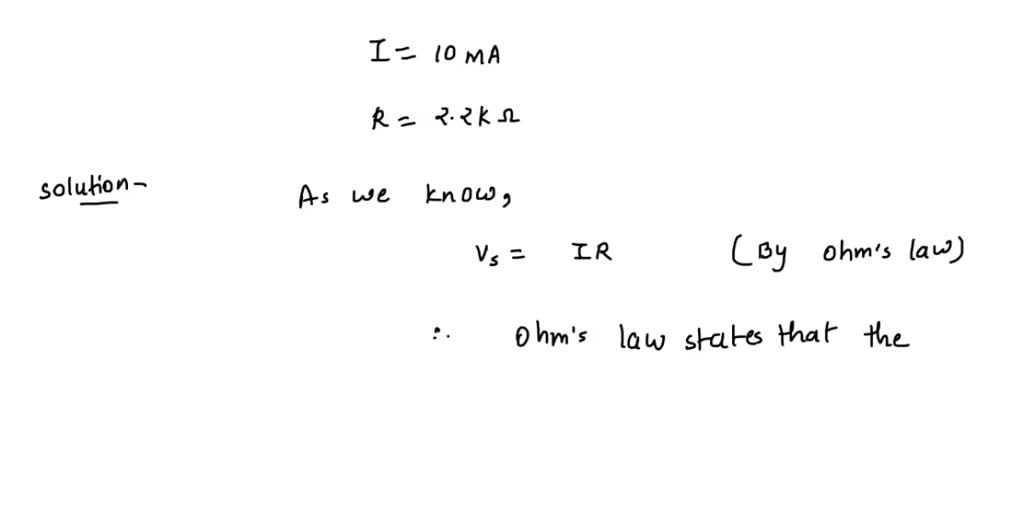 I = 10 mA
R = 2.2k Ω
solution-
As we know,
Vs = IR (By ohm's law)
∴ ohm's law states that the